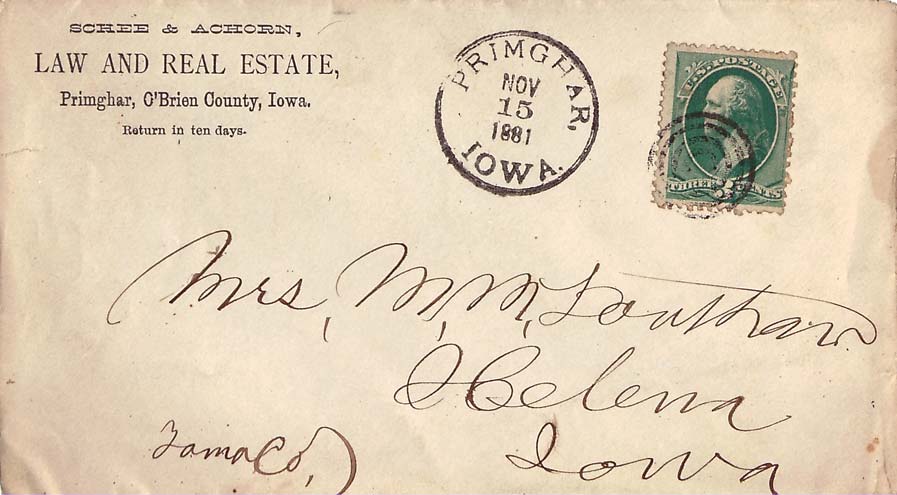 SCHEE & ACHORN,
LAW AND REAL ESTATE,
Primghar, O'Brien County, Iowa.
Return in ten days.
PRIMGHAR,
NOV
15
1881
IOWA.
U.S. POSTAGE
THREE 3 CENTS
Mrs, M, M, Southard
Helena
Iowa
Tama Co,)